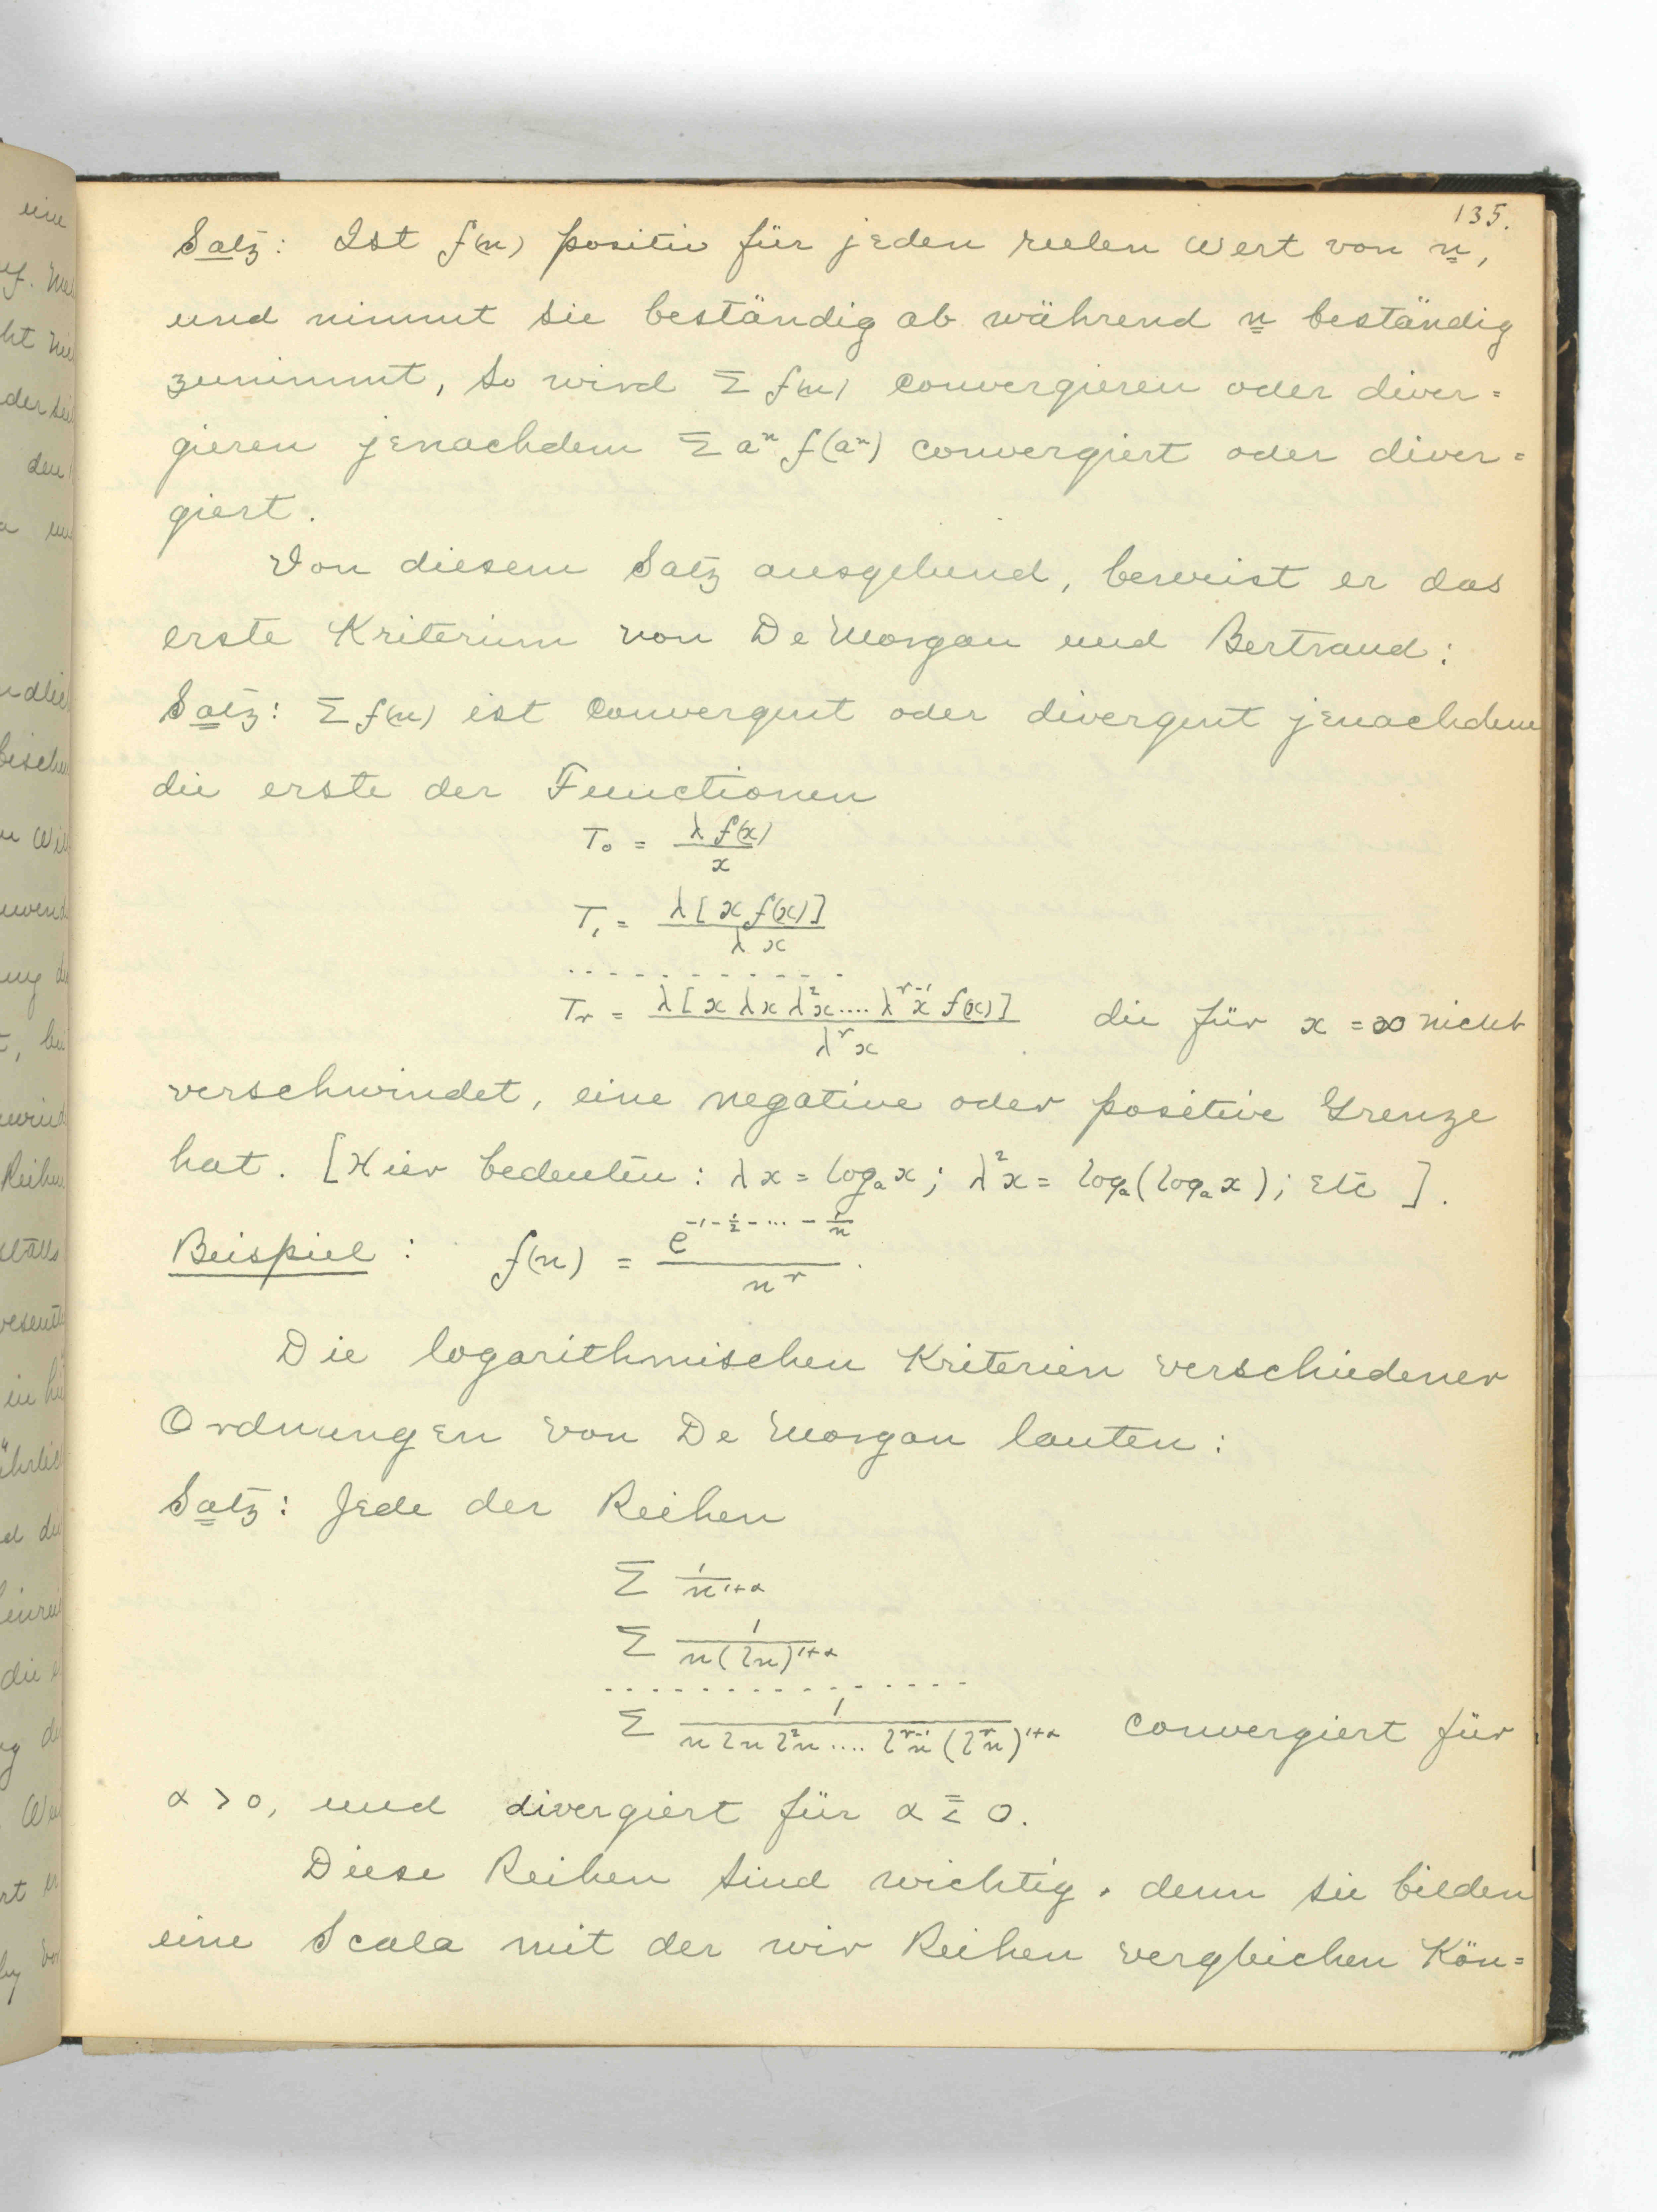 135.
Satz: Ist f(n) positiv für jeden reelen Wert von n,
und nimmt sie beständig ab während n beständig
zunimmt, so wird Σ f(n) convergieren oder diver=
gieren jenachdem Σ aⁿ f(aⁿ) convergiert oder diver=
giert.
Von diesem Satz ausgehend, beweist er das
erste Kriterium von De Morgan und Bertrand:
Satz: Σ f(n) ist convergent oder divergent jenachdem
die erste der Functionen
T₀ = λ f(x) / x
T₁ = λ [x f(x)] / λ x
. . . . . . . . . . . .
Tᵣ = λ [x λx λ²x .... λʳ⁻¹x f(x)] / λʳx die für x = ∞ nicht
verschwindet, eine negative oder positive Grenze
hat. [Hier bedeuten: λx = logₐ x; λ²x = logₐ(logₐ x); etc].
Beispiel: f(n) = e^(-1 - 1/2 - ... - 1/n) / nʳ.
Die logarithmischen Kriterien verschiedener
Ordnungen von De Morgan lauten:
Satz: Jede der Reihen
Σ 1 / n¹⁺ᵅ
Σ 1 / n(ln)¹⁺ᵅ
. . . . . . . . . . . . . . .
Σ 1 / n ln l²n .... lʳ⁻¹n (lʳn)¹⁺ᵅ convergiert für
α > 0, und divergiert für α ≦ 0.
Diese Reihen sind wichtig, denn sie bilden
eine Scala mit der wir Reihen vergleichen Kön=